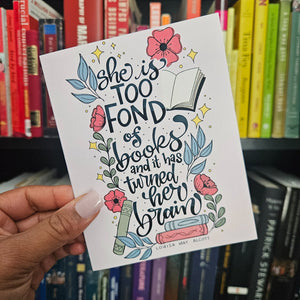 she is
TOO
FOND
of
books
and it has
turned
her
brain
LOUISA MAY ALCOTT
PATRICK STEWART